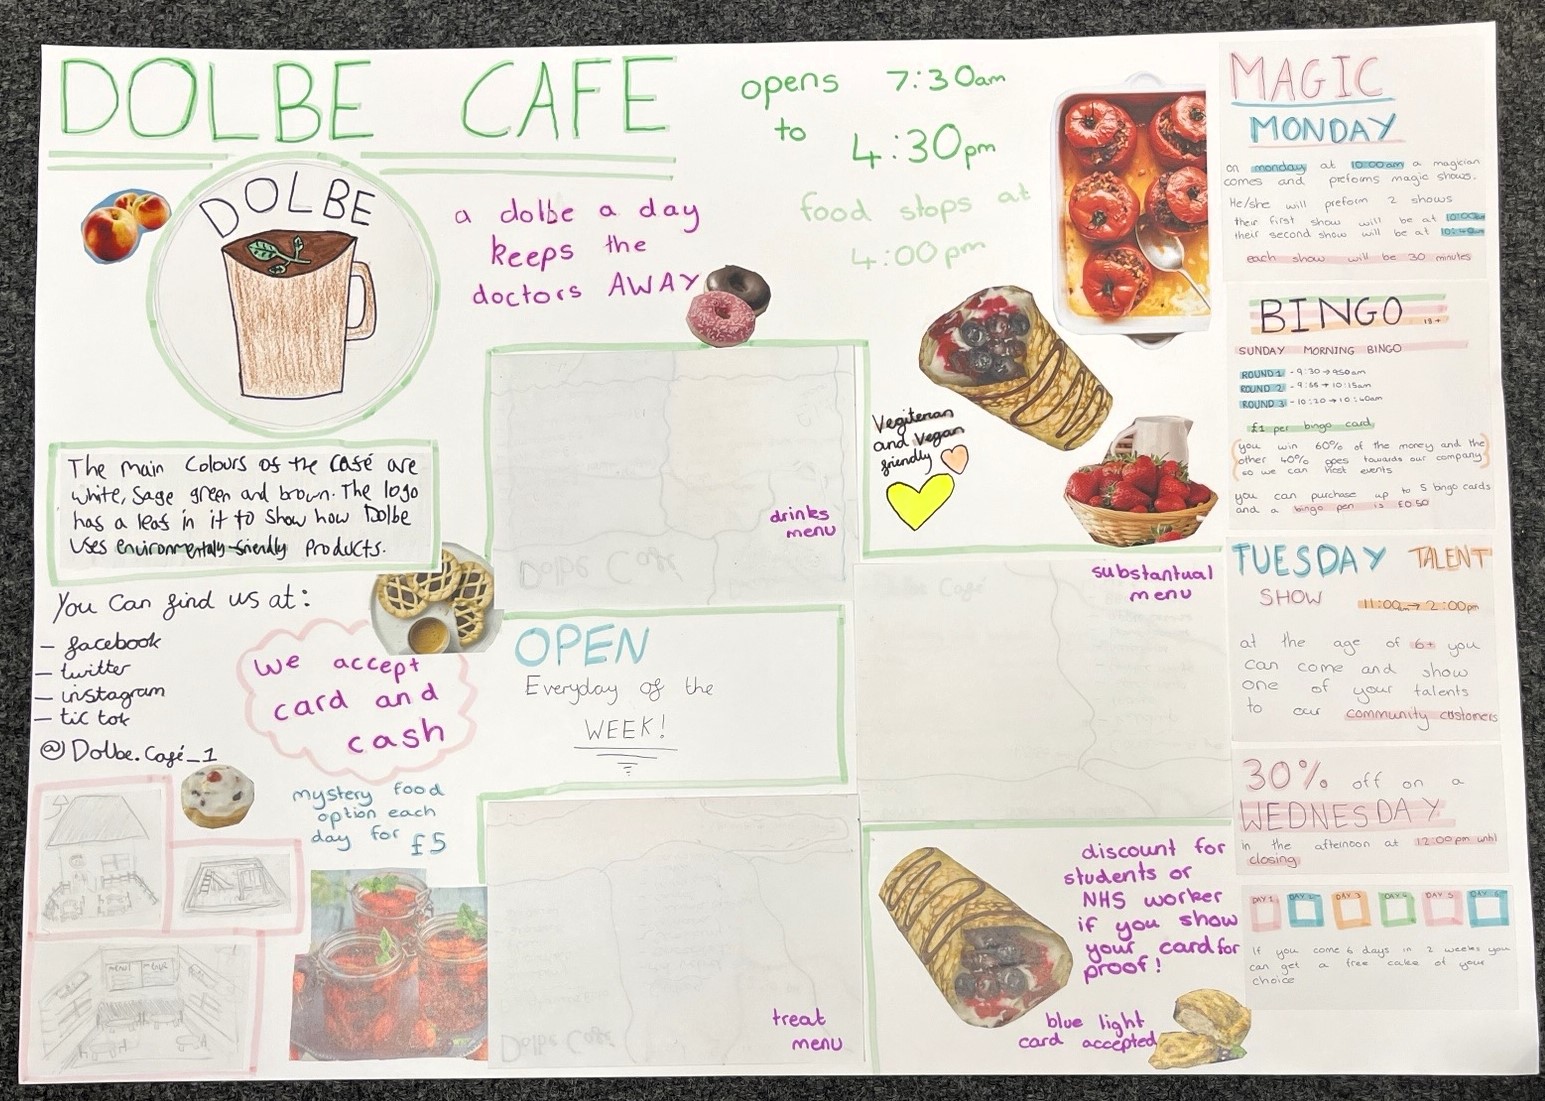 DOLBE CAFE
opens 7:30am
to
4:30pm
food stops at
4:00pm
DOLBE
a dolbe a day
keeps the
doctors AWAY
The main colours of the café are
white, sage green and brown. The logo
has a leaf in it to show how Dolbe
uses environmentaly-friendly products.
You can find us at:
- facebook
- twitter
- instagram
- tic tok
@Dolbe.Café_1
we accept
card and
cash
mystery food
option each
day for £5
menu
drinks
menu
OPEN
Everyday of the
WEEK!
treat
menu
Dolbe Café
Dolbe Café
Vegiterian
and Vegan
friendly
substantual
menu
discount for
students or
NHS worker
if you show
your card for
proof!
blue light
card accepted
MAGIC
MONDAY
on monday at 10:00am a magician
comes and preforms magic shows.
He/she will preform 2 shows
their first show will be at 10:00am
their second show will be at 10:40am
each show will be 30 minutes
BINGO 18+
SUNDAY MORNING BINGO
ROUND 1 - 9:30 → 9:50am
ROUND 2 - 9:55 → 10:15am
ROUND 3 - 10:20 → 10:40am
£1 per bingo card
you win 60% of the money and the
other 40% goes towards our company
so we can host events
you can purchase up to 5 bingo cards
and a bingo pen is £0.50
TUESDAY TALENT
SHOW 11:00am → 2:00pm
at the age of 6+ you
can come and show
one of your talents
to our community customers
30% off on a
WEDNESDAY
in the afternoon at 12:00pm until
closing
DAY 1 DAY 2 DAY 3 DAY 4 DAY 5 DAY 6
If you come 6 days in 2 weeks you
can get a free cake of your
choice